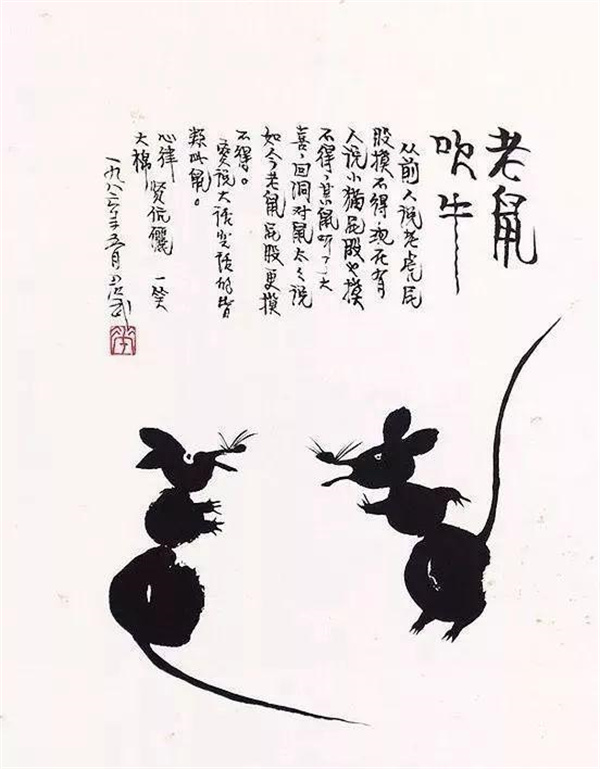 老鼠
吹牛
从前人说老虎屁
股摸不得现在有
人说小猫屁股也摸
不得，某鼠听了大
喜，回洞对鼠太々说
如今老鼠屁股更摸
不得。
爱说大话空话的皆
类此鼠。
心律 贤伉俪 一笑
大棉
一九八 年五月 君武